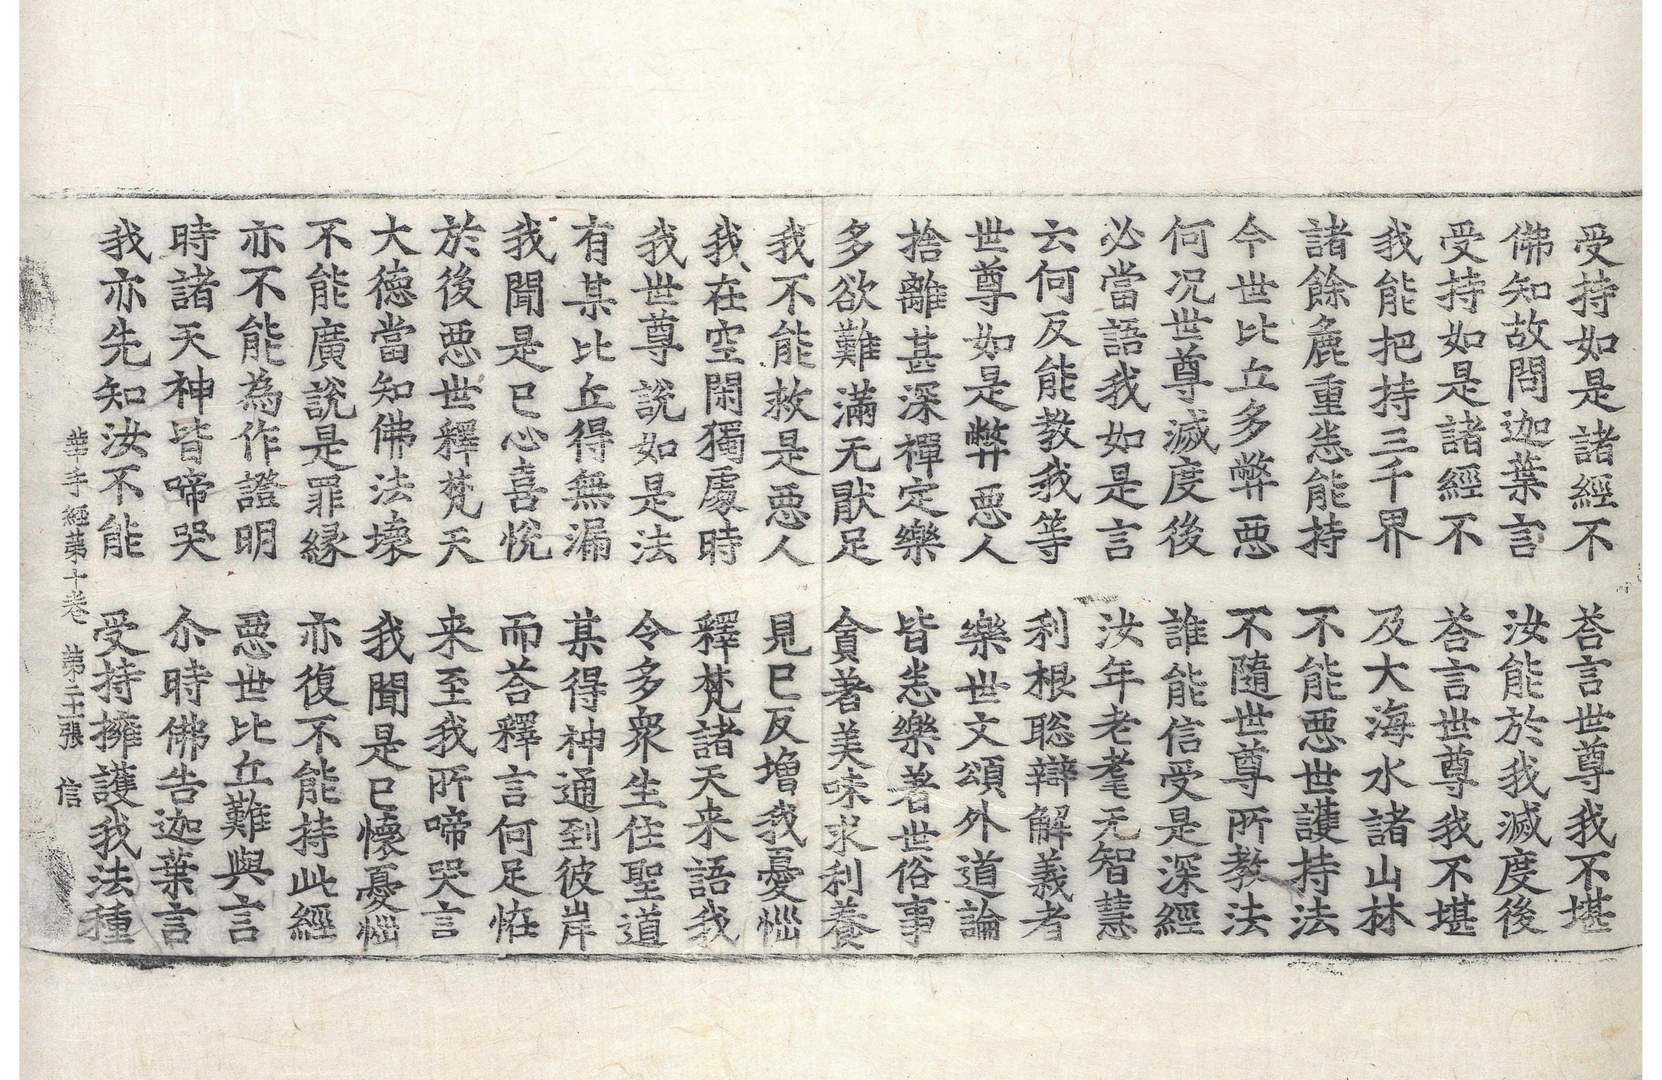 受持如是諸經不　荅言世尊我不堪
佛知故問迦葉言　汝能於我滅度後
受持如是諸經不　荅言世尊我不堪
我能把持三千界　及大海水諸山林
諸餘麁重悉能持　不能惡世護持法
今世比丘多弊惡　不隨世尊所教法
何況世尊滅度後　誰能信受是深經
必當語我如是言　汝年老耄无智慧
云何反能教我等　利根聡辯解義者
世尊如是弊惡人　樂世文頌外道論
捨離甚深禪定樂　皆悉樂著世俗事
多欲難滿无猒足　貪著美味求利養
我不能救是惡人　見已反增我憂惱
我在空閑獨處時　釋梵諸天来語我
我世尊說如是法　令多衆生住聖道
有某比丘得無漏　某得神通到彼岸
我聞是已心喜悅　而荅釋言何足恠
於後惡世釋梵天　来至我所啼哭言
大德當知佛法壞　我聞是已懷憂惱
不能廣說是罪縁　亦復不能持此經
亦不能為作證明　惡世比丘難與言
時諸天神皆啼哭　尒時佛告迦葉言
我亦先知汝不能　受持擁護我法種
華手經第十卷　第二十張　信